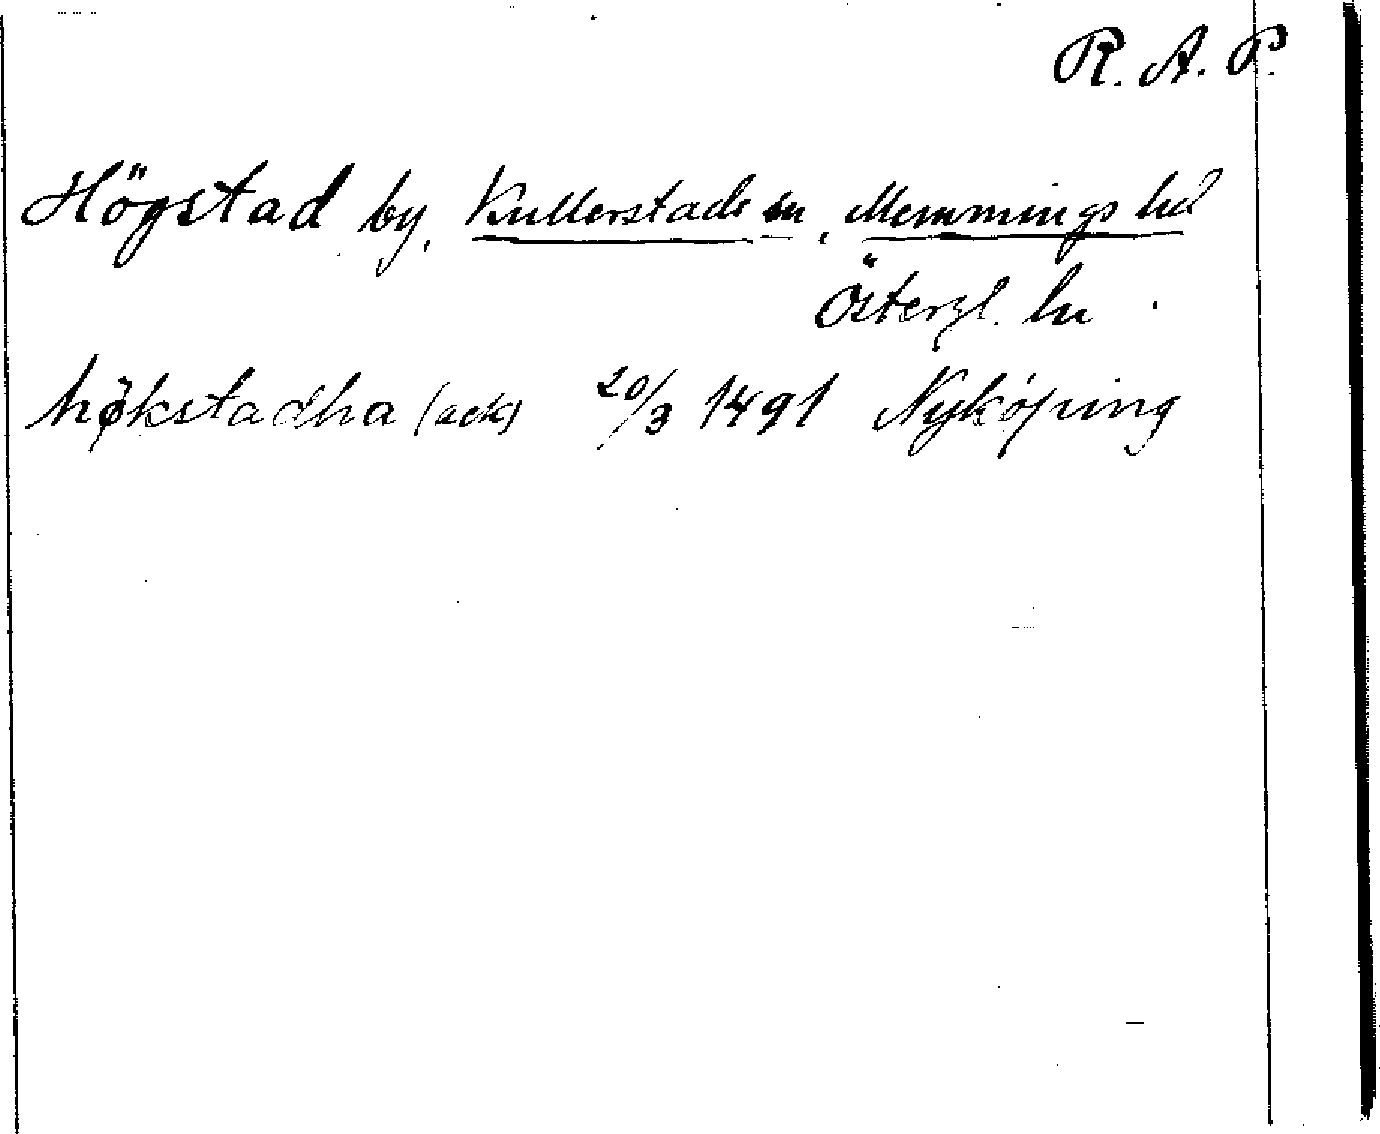 R. A. P.
Högstad by, Kullerstads sn, Memmings hd
Östergl. ln
høkstadha (ack) 20/3 1491 Nyköping